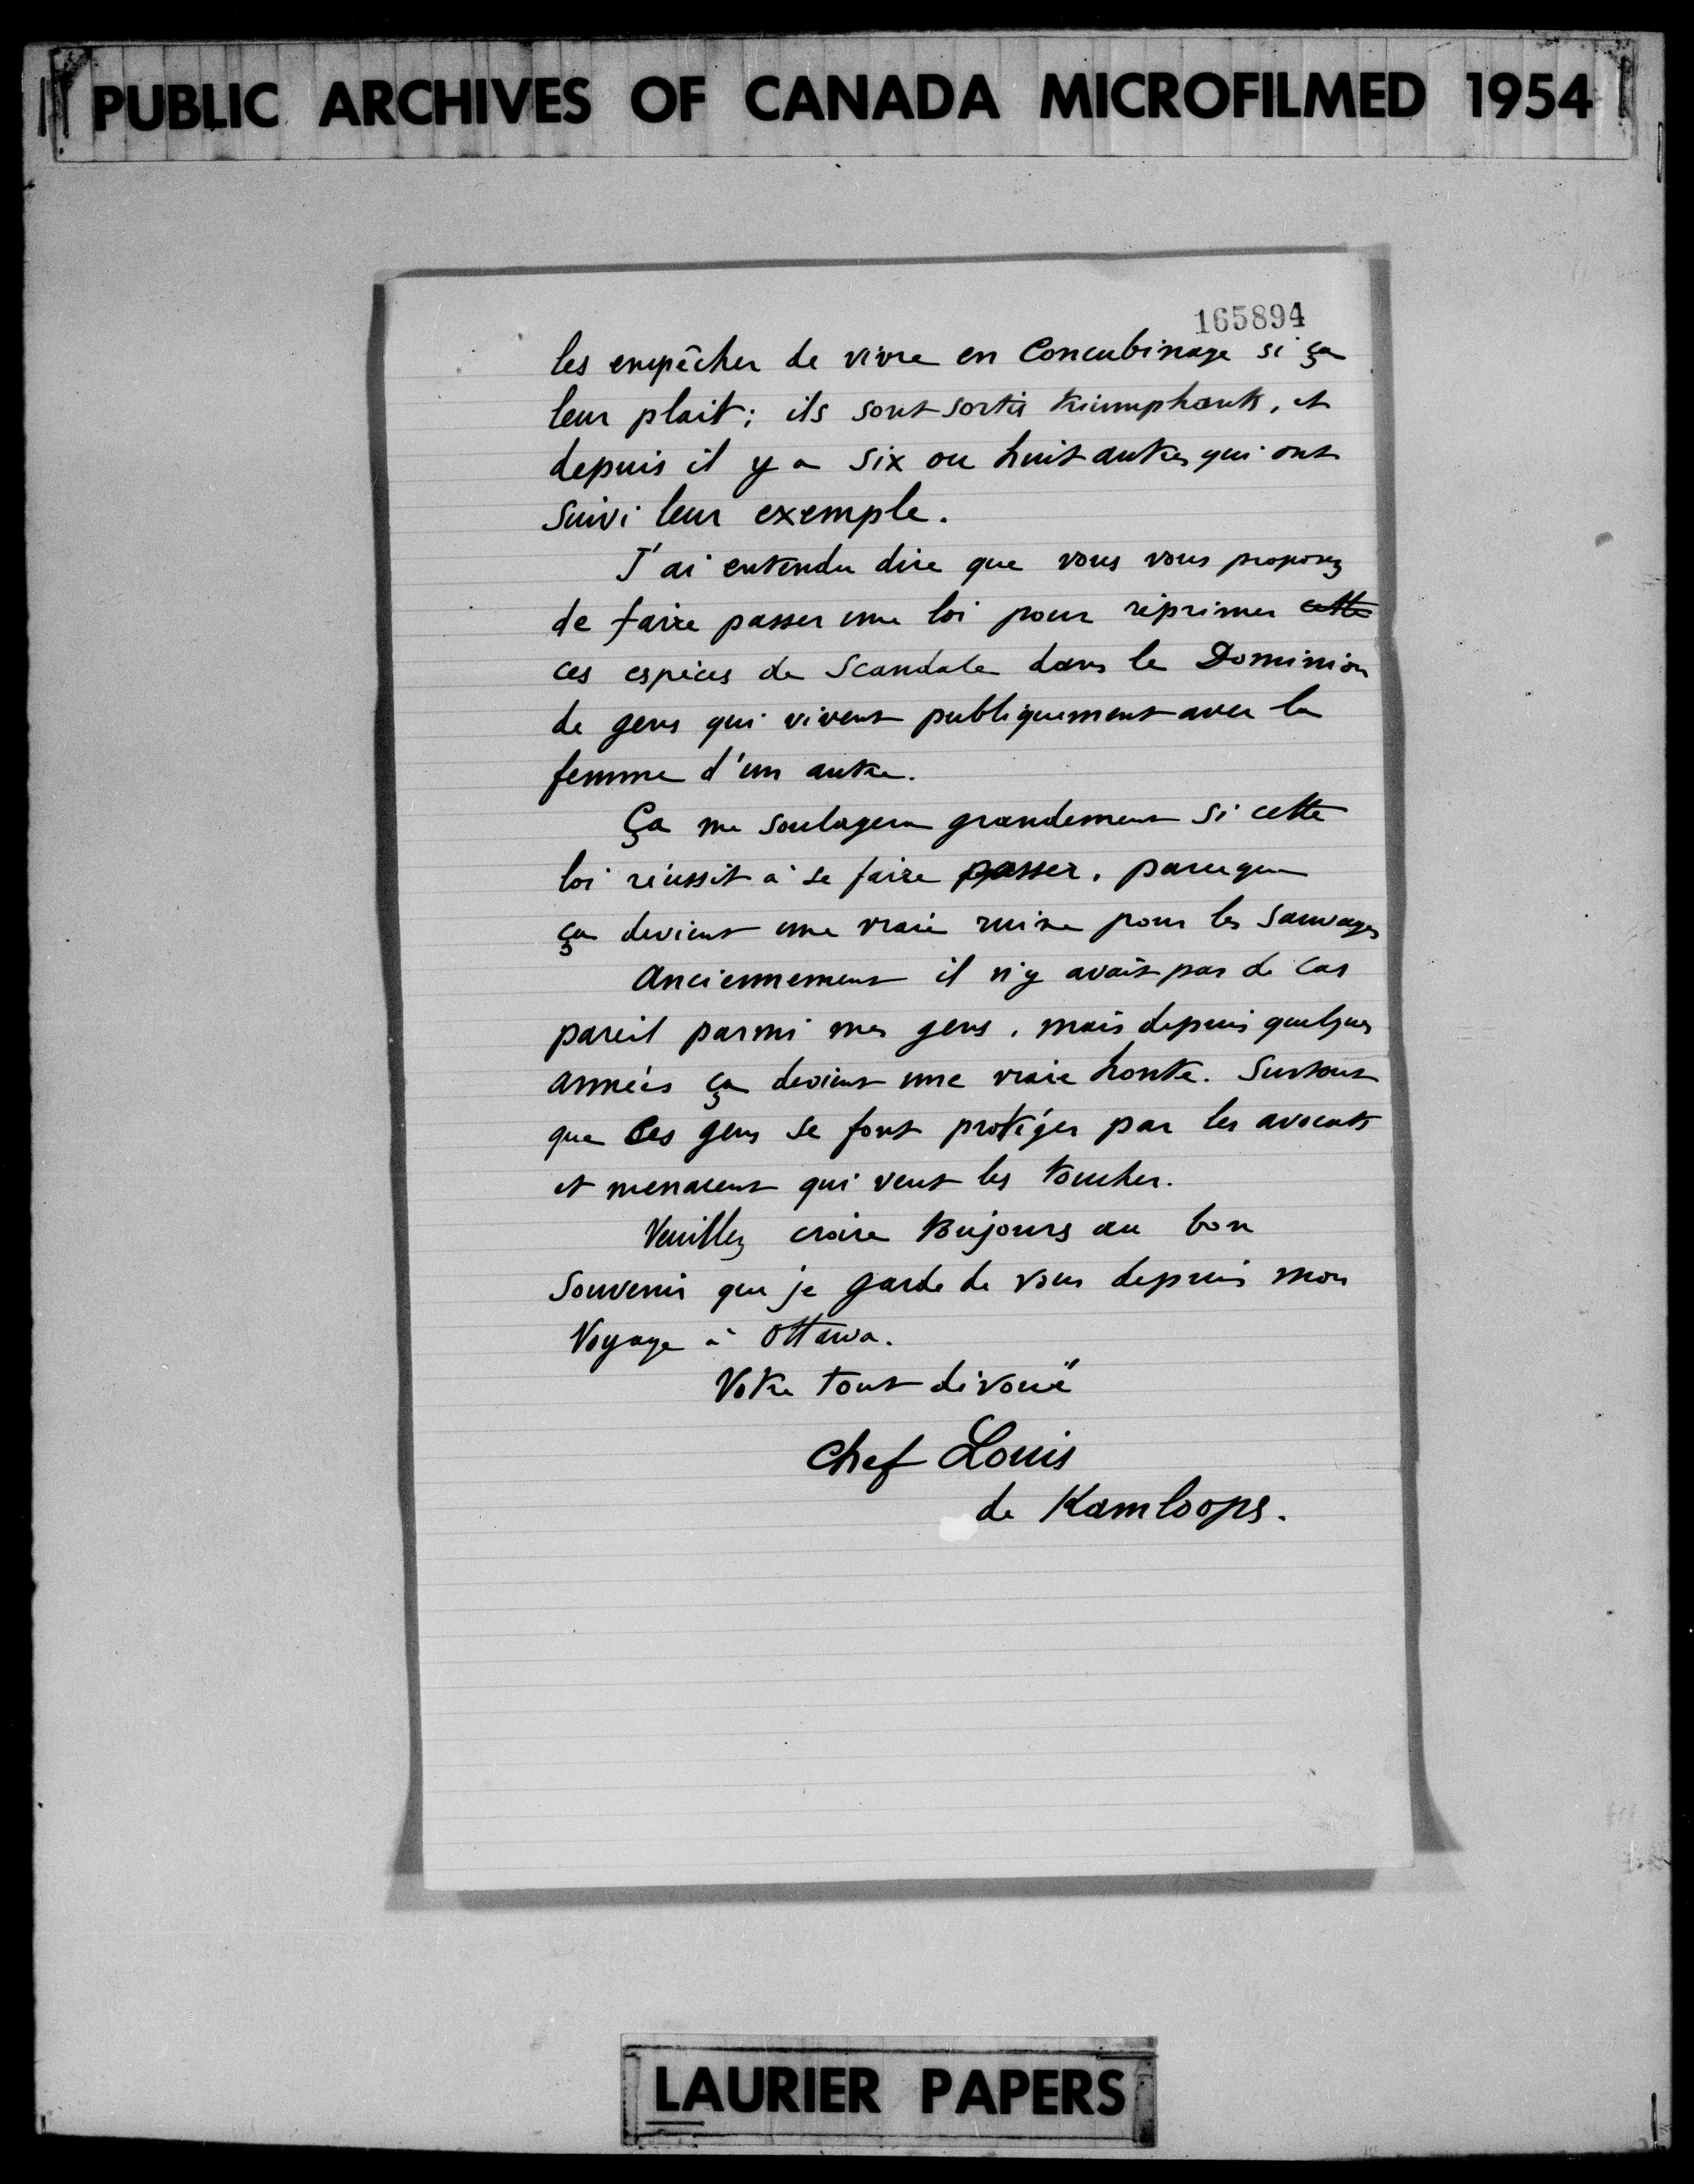 PUBLIC ARCHIVES OF CANADA MICROFILMED 1954
165894
les empêcher de vivre en Concubinage si ça
leur plait ; ils sont sortis triumphants, et
depuis il y a six ou huit autres qui ont
suivi leur exemple.
J'ai entendu dire que vous vous proposez
de faire passer une loi pour réprimer cette
ces espèces de Scandale dans le Dominion
de gens qui vivent publiquement avec la
femme d'un autre.
Ça me soulagera grandement si cette
loi réussit à se faire passer, parceque
ça devient une vraie ruine pour les Sauvages
Anciennement il n'y avait pas de cas
pareil parmi mes gens, mais depuis quelques
années ça devient une vraie honte. Surtout
que Ces gens se font protéger par les avocats
et menacent qui veut les toucher.
Veuillez croire toujours au bon
Souvenir que je garde de vous depuis mon
Voyage à Ottawa.
Votre tout dévoué
Chef Louis
de Kamloops.
LAURIER PAPERS